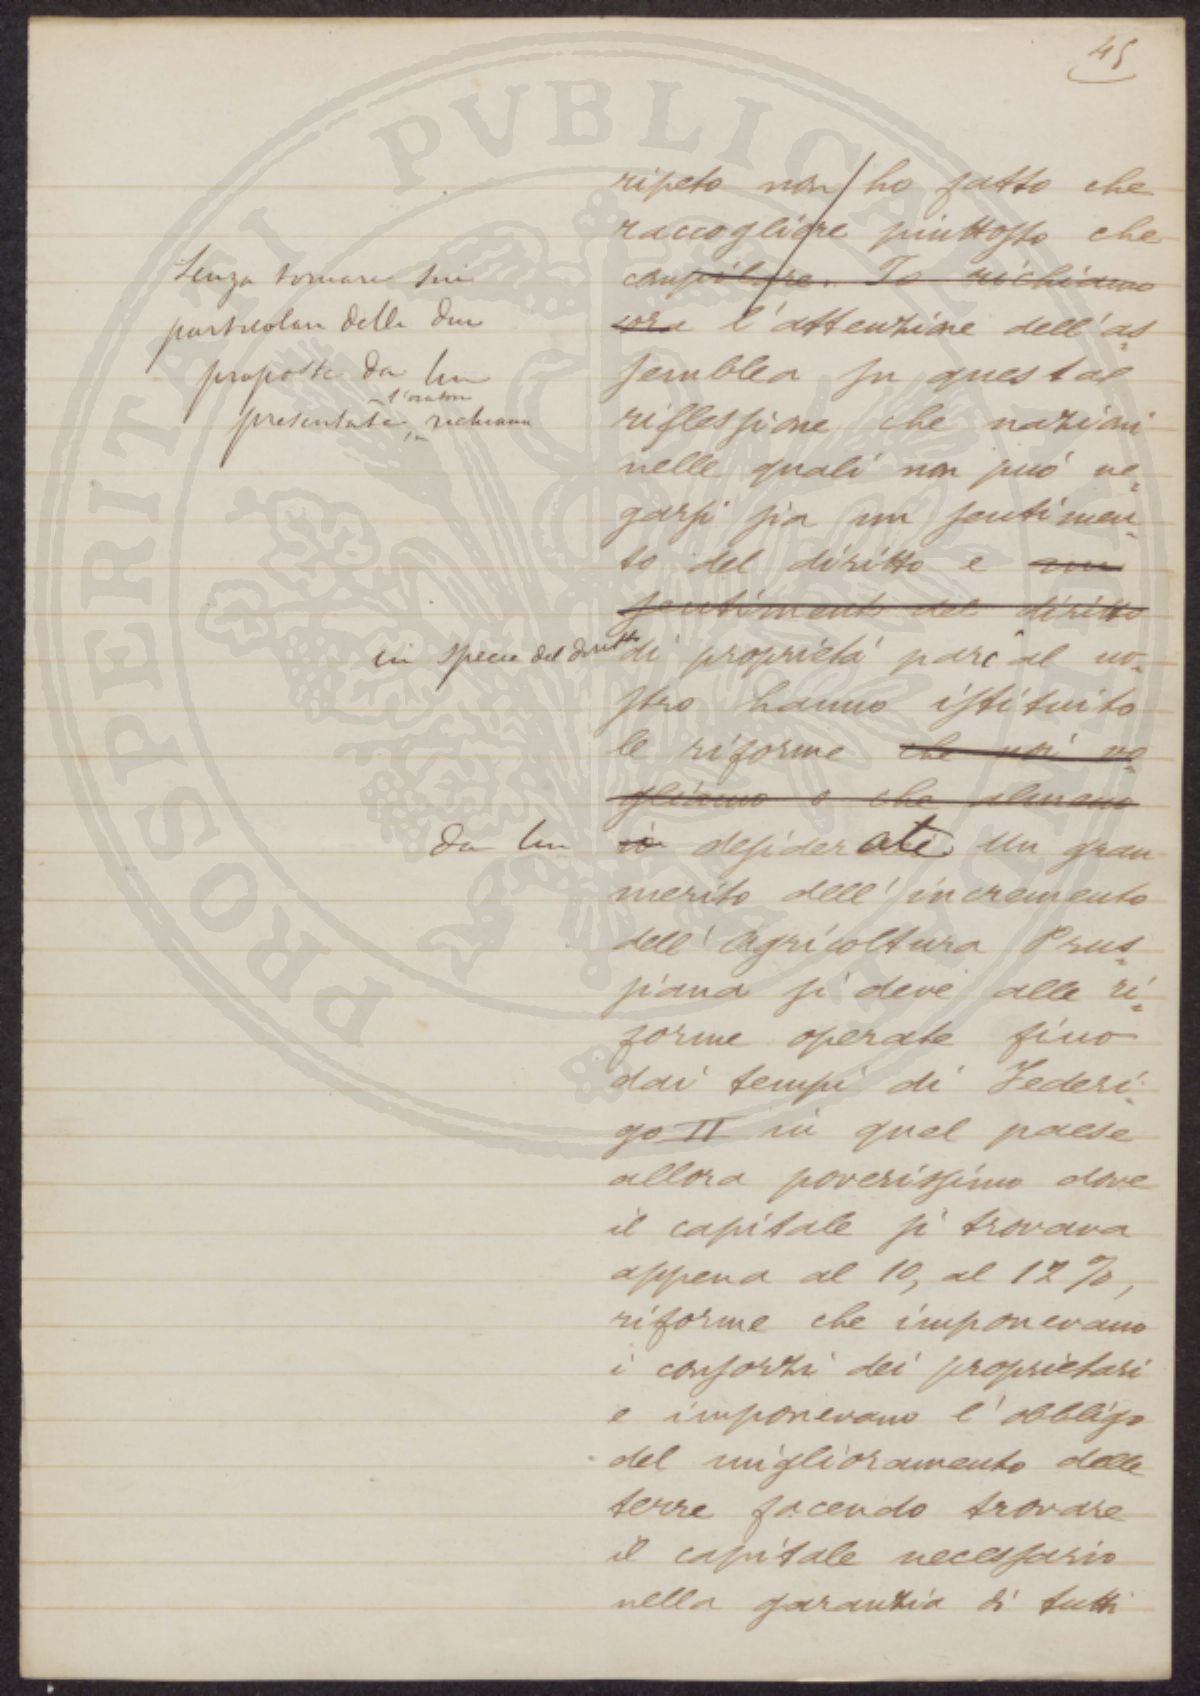 45
ripeto non ho fatto che
raccogliere piuttosto che
compilare. Io richiamo
ora l'attenzione dell'as=
semblea su questa
riflessione che nazioni
nelle quali non può ne=
garsi sia un sentimen=
to del diritto e un
sentimento del diritto
di proprietà pari al no=
stro hanno istituito
le riforme che noi vo=
gliamo o che almeno
io desiderate. Un gran
merito dell'incremento
dell'Agricoltura Prus=
siana si deve alle ri=
forme operate fino
dai tempi di Federi=
go II in quel paese
allora poverissimo dove
il capitale si trovava
appena al 10, al 12 %,
riforme che imponevano
i consorzi dei proprietari
e imponevano l'obbligo
del miglioramento delle
terre facendo trovare
il capitale necessario
nella garanzia di tutti
Senza tornare sui
particolari delle due
proposte da lui
presentate l'oratore richiama
in specie del diritto
da lui
PROSPERITATI PVBLICAE